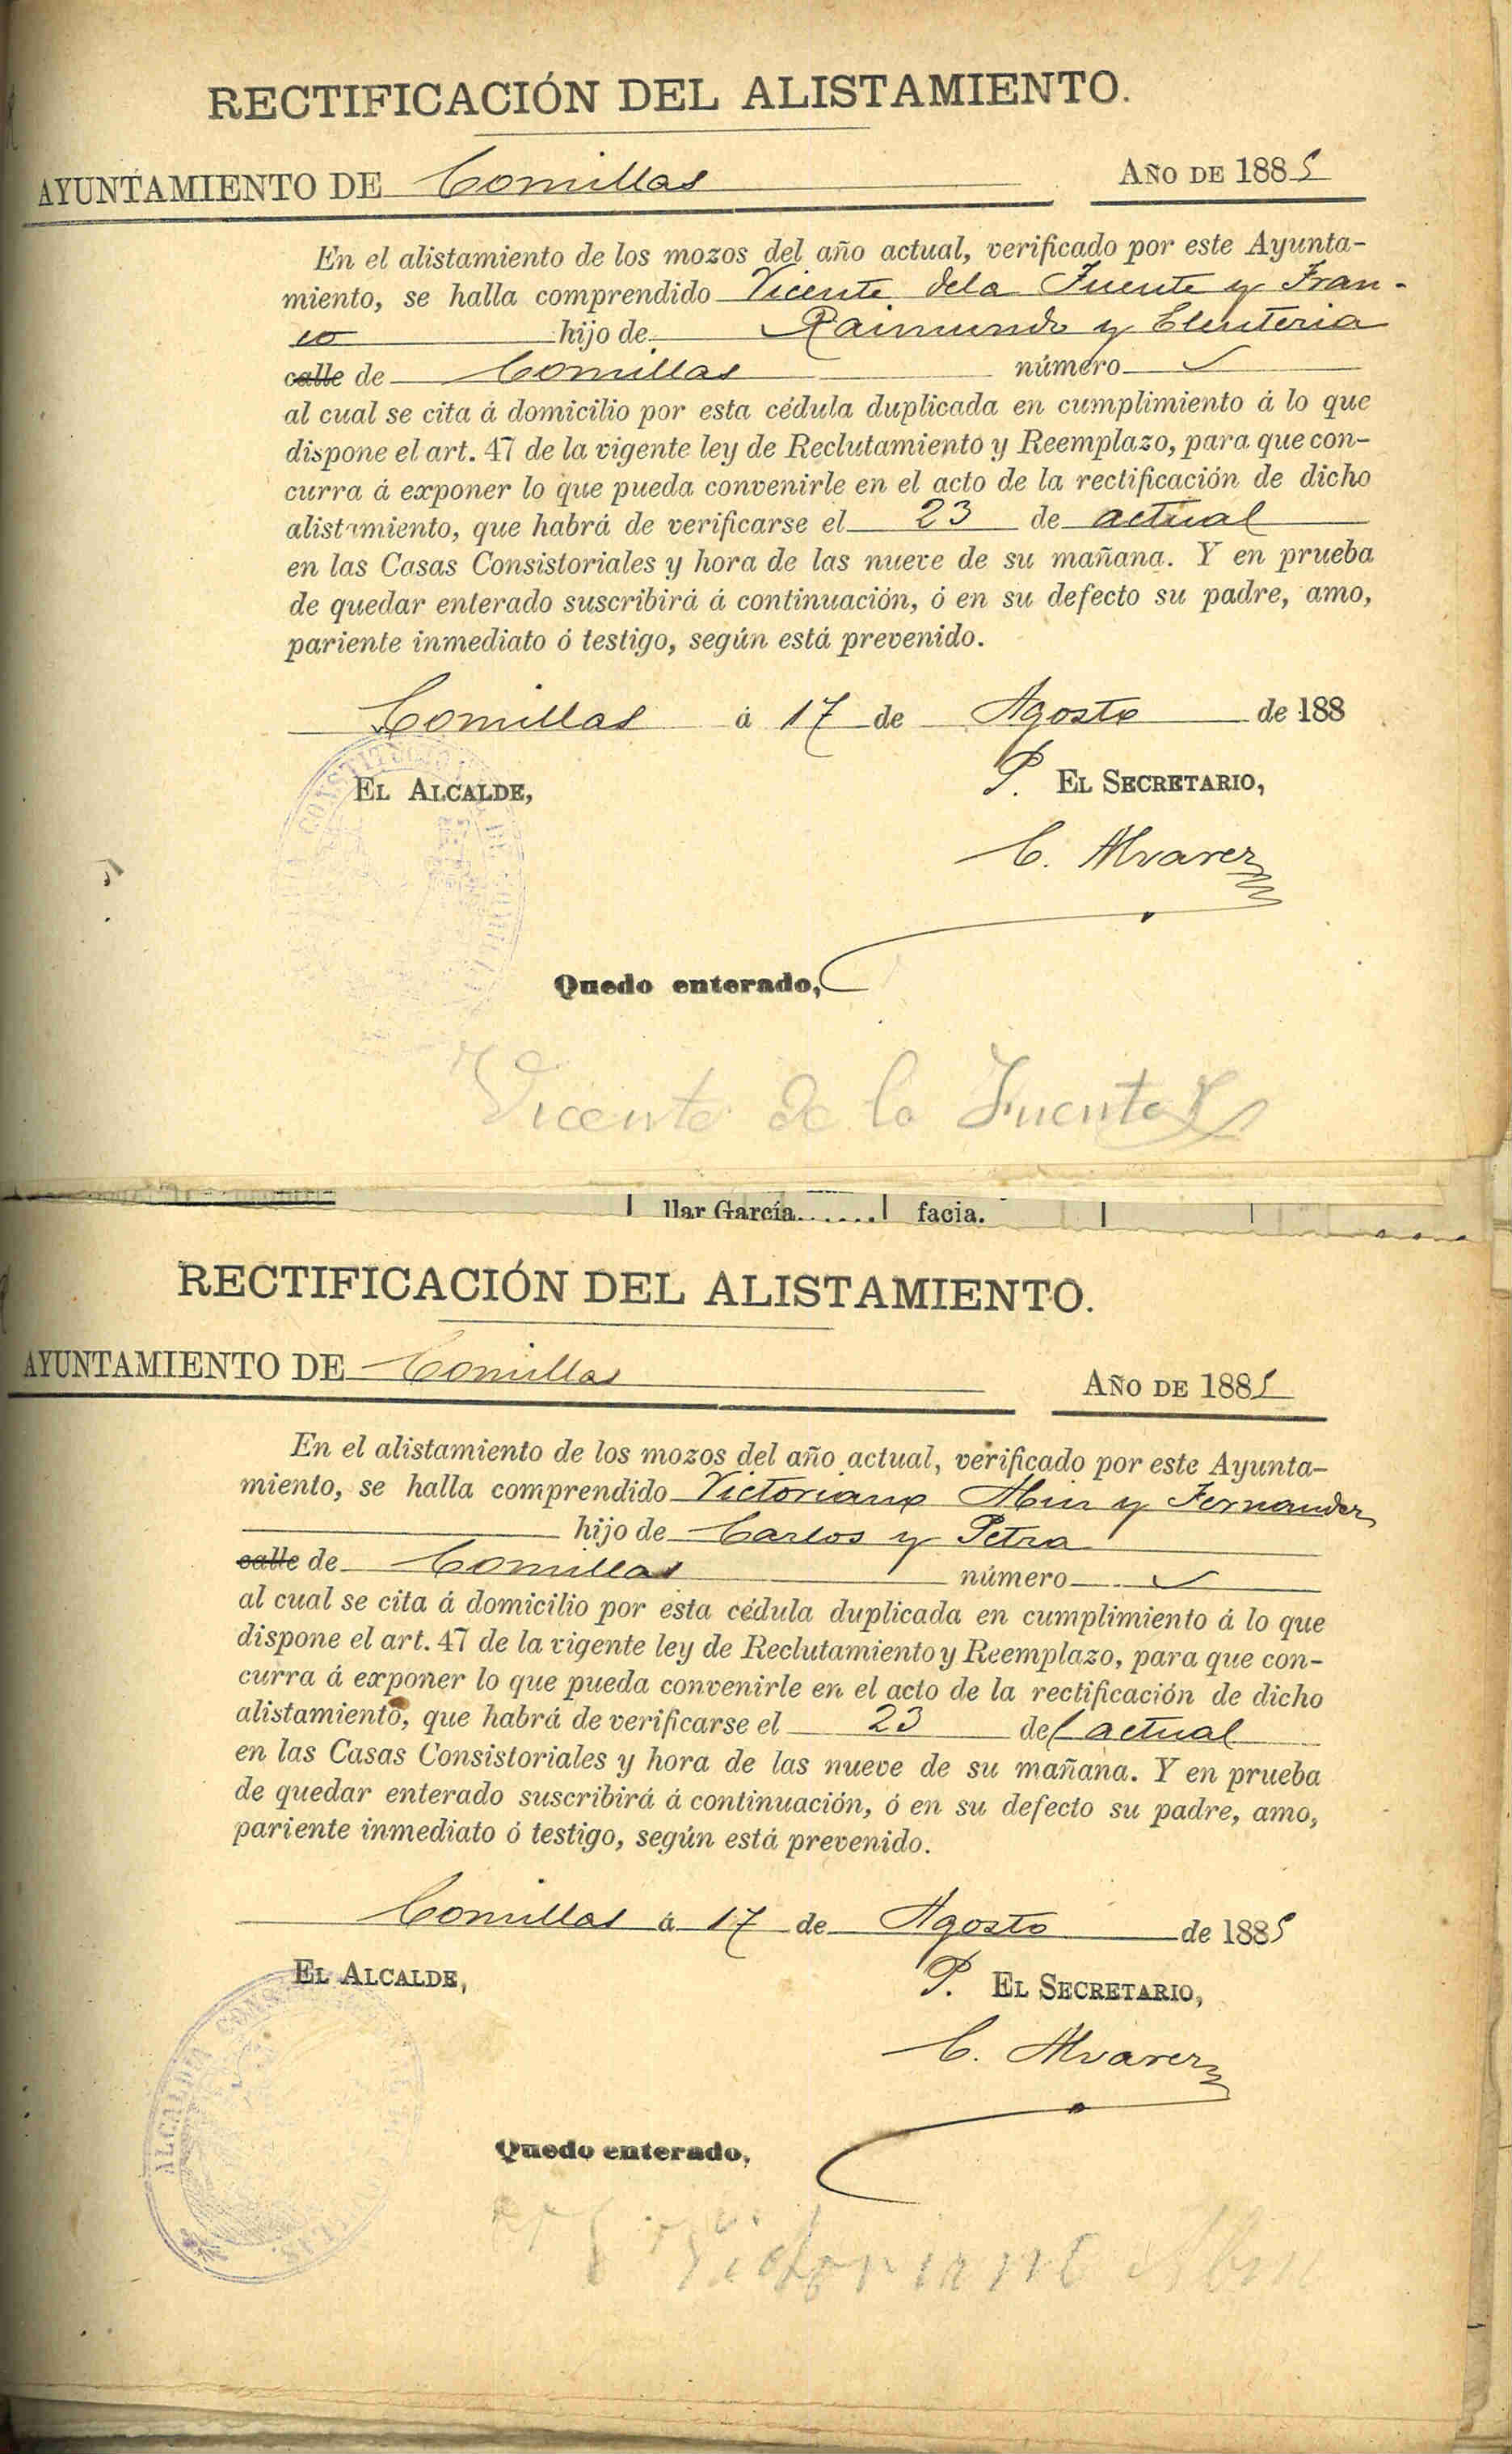 RECTIFICACIÓN DEL ALISTAMIENTO.
AYUNTAMIENTO DE Comillas AÑO DE 1885
En el alistamiento de los mozos del año actual, verificado por este Ayunta-
miento, se halla comprendido Vicente dela Fuente y Fran-
co hijo de Raimundo y Eleuteria
calle de Comillas número
al cual se cita á domicilio por esta cédula duplicada en cumplimiento á lo que
dispone el art. 47 de la vigente ley de Reclutamiento y Reemplazo, para que con-
curra á exponer lo que pueda convenirle en el acto de la rectificación de dicho
alistamiento, que habrá de verificarse el 23 de actual
en las Casas Consistoriales y hora de las nueve de su mañana. Y en prueba
de quedar enterado suscribirá á continuación, ó en su defecto su padre, amo,
pariente inmediato ó testigo, según está prevenido.
Comillas á 17 de Agosto de 188
EL ALCALDE, P. EL SECRETARIO,
C. Alvarez
Quedo enterado,
Vicente de la Fuente
llar García....... facia.
RECTIFICACIÓN DEL ALISTAMIENTO.
AYUNTAMIENTO DE Comillas AÑO DE 1885
En el alistamiento de los mozos del año actual, verificado por este Ayunta-
miento, se halla comprendido Victoriano Abin y Fernandez
hijo de Carlos y Petra
calle de Comillas número
al cual se cita á domicilio por esta cédula duplicada en cumplimiento á lo que
dispone el art. 47 de la vigente ley de Reclutamiento y Reemplazo, para que con-
curra á exponer lo que pueda convenirle en el acto de la rectificación de dicho
alistamiento, que habrá de verificarse el 23 del actual
en las Casas Consistoriales y hora de las nueve de su mañana. Y en prueba
de quedar enterado suscribirá á continuación, ó en su defecto su padre, amo,
pariente inmediato ó testigo, según está prevenido.
Comillas á 17 de Agosto de 1885
EL ALCALDE, P. EL SECRETARIO,
C. Alvarez
ALCALDÍA
Quedo enterado,
Victoriano Abin